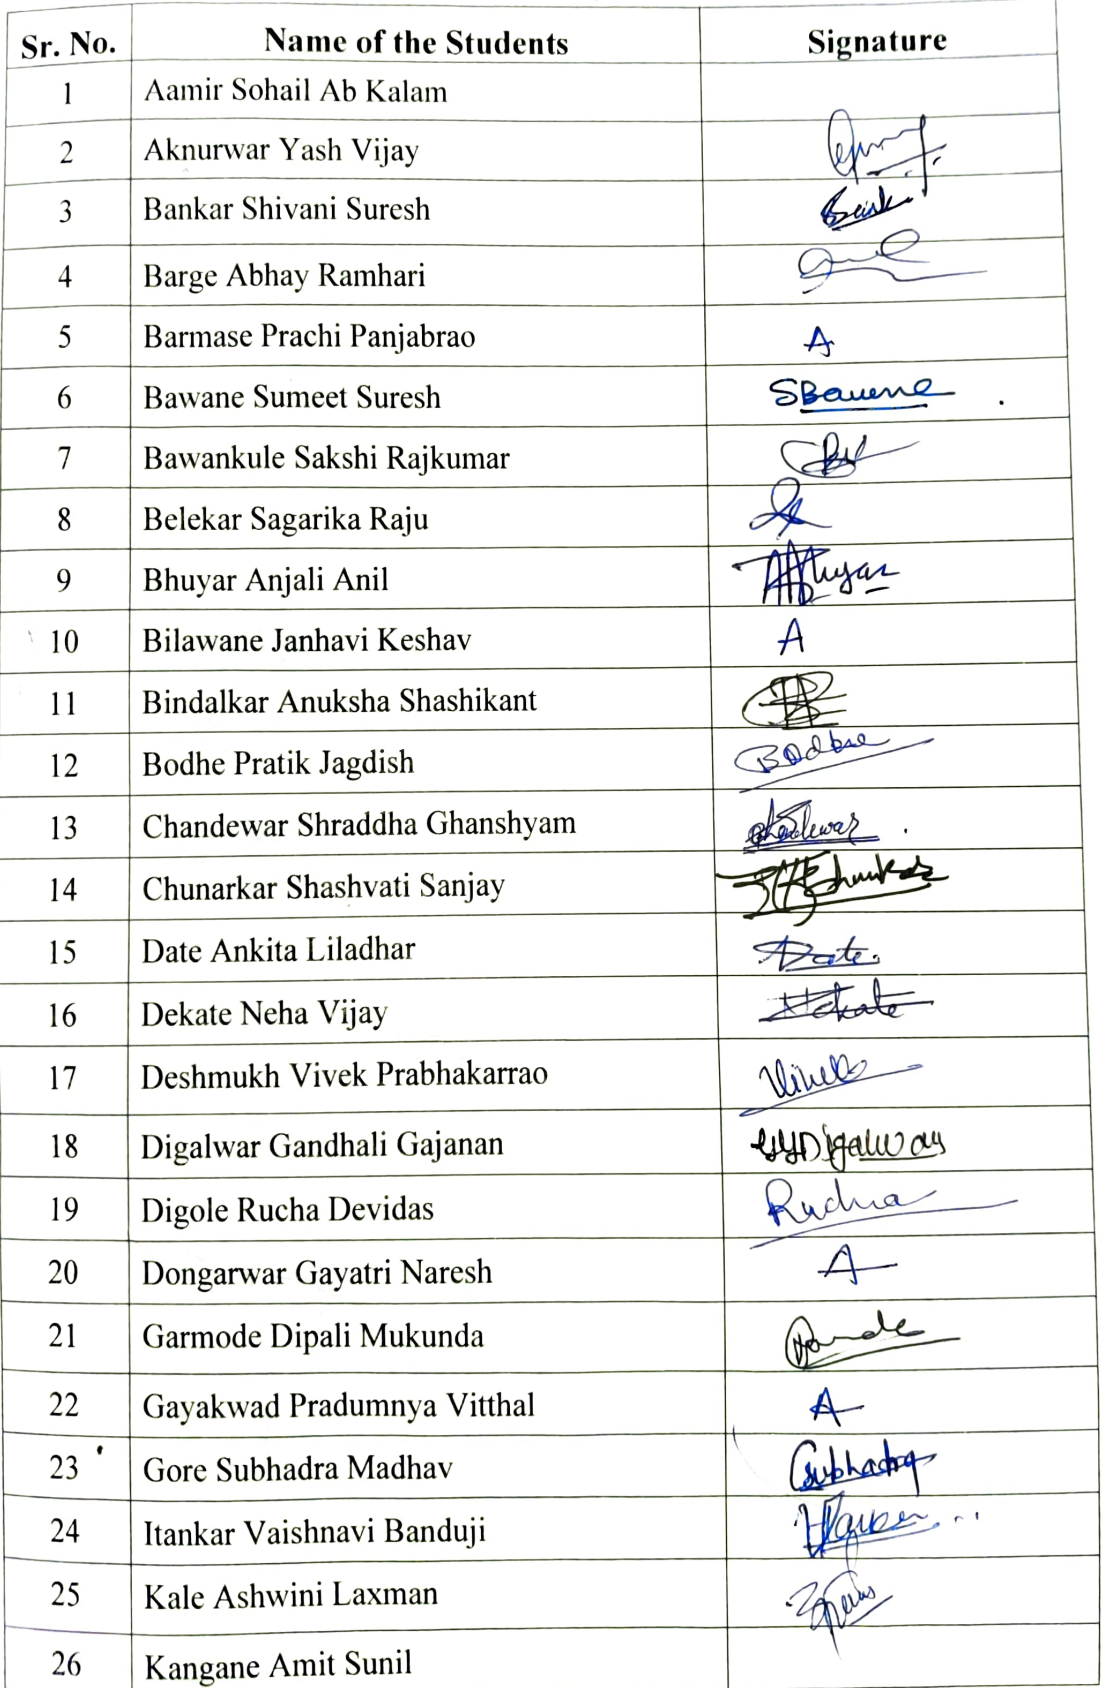 Sr. No. Name of the Students Signature
1 Aamir Sohail Ab Kalam
2 Aknurwar Yash Vijay
3 Bankar Shivani Suresh
4 Barge Abhay Ramhari
5 Barmase Prachi Panjabrao A
6 Bawane Sumeet Suresh SBawane
7 Bawankule Sakshi Rajkumar
8 Belekar Sagarika Raju
9 Bhuyar Anjali Anil
10 Bilawane Janhavi Keshav A
11 Bindalkar Anuksha Shashikant
12 Bodhe Pratik Jagdish Bodhe
13 Chandewar Shraddha Ghanshyam
14 Chunarkar Shashvati Sanjay
15 Date Ankita Liladhar Date
16 Dekate Neha Vijay
17 Deshmukh Vivek Prabhakarrao Vivek
18 Digalwar Gandhali Gajanan
19 Digole Rucha Devidas Rucha
20 Dongarwar Gayatri Naresh A
21 Garmode Dipali Mukunda
22 Gayakwad Pradumnya Vitthal A
23 Gore Subhadra Madhav Subhadra
24 Itankar Vaishnavi Banduji
25 Kale Ashwini Laxman
26 Kangane Amit Sunil